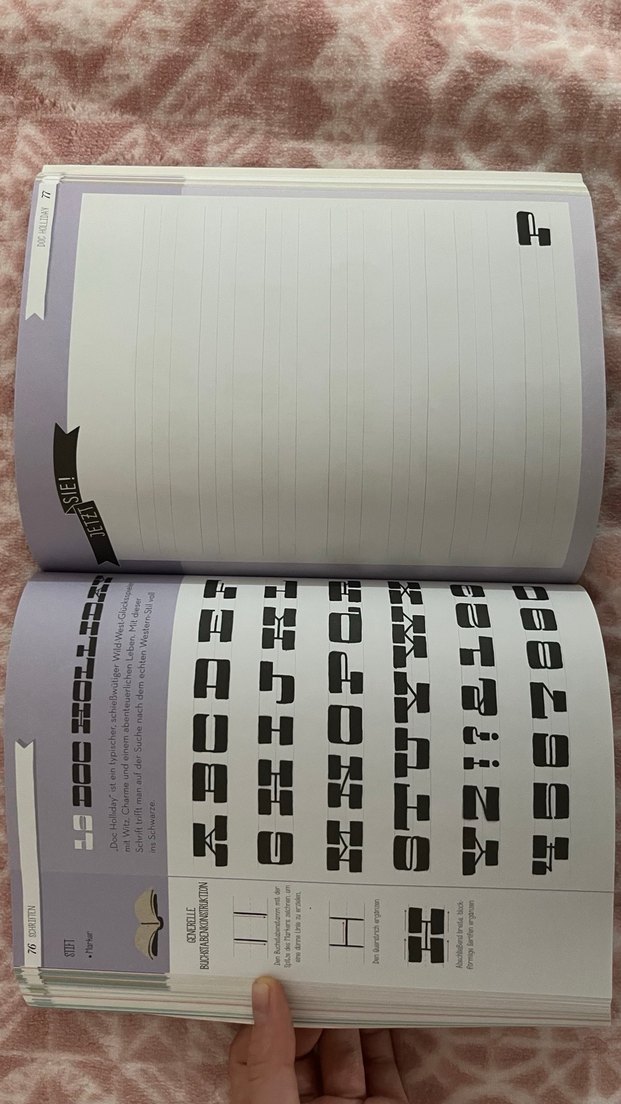 76 SCHRIFTEN
STIFT
• Marker
19 DOC HOLLIDAY
„Doc Holliday“ ist ein typischer, schießwütiger Wild-West-Glücksspieler
mit Witz, Charme und einem abenteuerlichen Leben. Mit dieser
Schrift trifft man auf der Suche nach dem echten Western-Stil voll
ins Schwarze.
GENERELLE
BUCHSTABENKONSTRUKTION
Den Buchstabenstamm mit der
Spitze des Markers zeichnen, um
eine dünne Linie zu erzielen.
H
Den Querstrich ergänzen.
H
Abschließend breite, block-
förmige Serifen ergänzen.
A B C D E F
G H I J K L
M N O P Q R
S T U V W X
Y Z ! ? & 1 2 3
4 5 6 7 8 9 0
DOC HOLLIDAY 77
JETZT SIE!